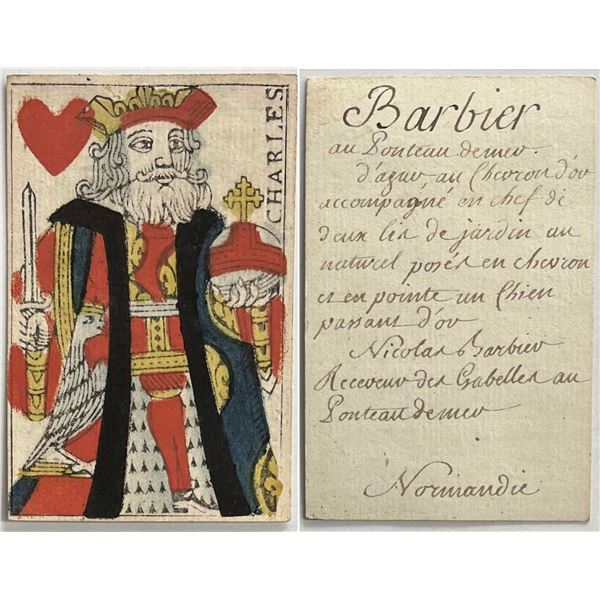 CHARLES
Barbier
au Ponteau demer.
d'azur au Chevron d'or
accompagné en chef de
deux lis de jardin au
naturel posés en chevron
et en pointe un Chien
passant d'or
Nicolas Barbier
Receveur des Gabelles au
Ponteau demer
Normandie